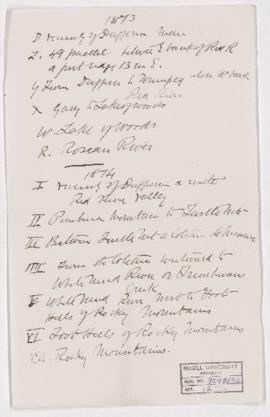 1873
D vicinity of Dufferin Man
Z. 49 parallel between E bank of Red R
a point
Y From Dufferin to Winnipeg along W bank
Red River
X Garry to Lake of Woods
W. Lake of Woods
R. Roseau River
1874
I vicinity of Dufferin &
Red River Valley
II Pembina Mountain to Turtle Mt
III Between Turtle Mt &
IIII From the Coteau westward to
White Mud River or Frenchman
Creek
V White Mud River west to Foot
Hills of Rocky Mountains
VI Foot Hills of Rocky Mountains
VII. Rocky Mountains.
McGILL UNIVERSITY
ARCHIVES
ACC. NO.
REF. 12